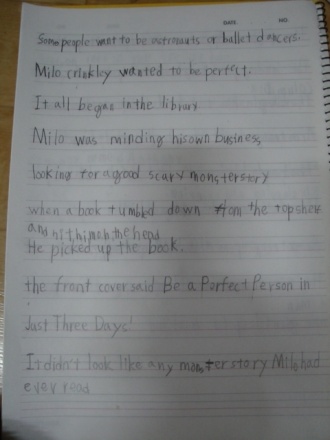 DATE. NO.
Some people want to be astronauts or ballet dancers.
Milo crinkley wanted to be perfect.
It all began in the library
Milo was minding hisown business,
looking for a good scary monsterstory
when a book tumbled down from the topshelf
and hit him on the head
He picked up the book.
the front cover said Be a Perfect Person in
Just Three Days!
It didn't look like any monster story Milo had
ever read